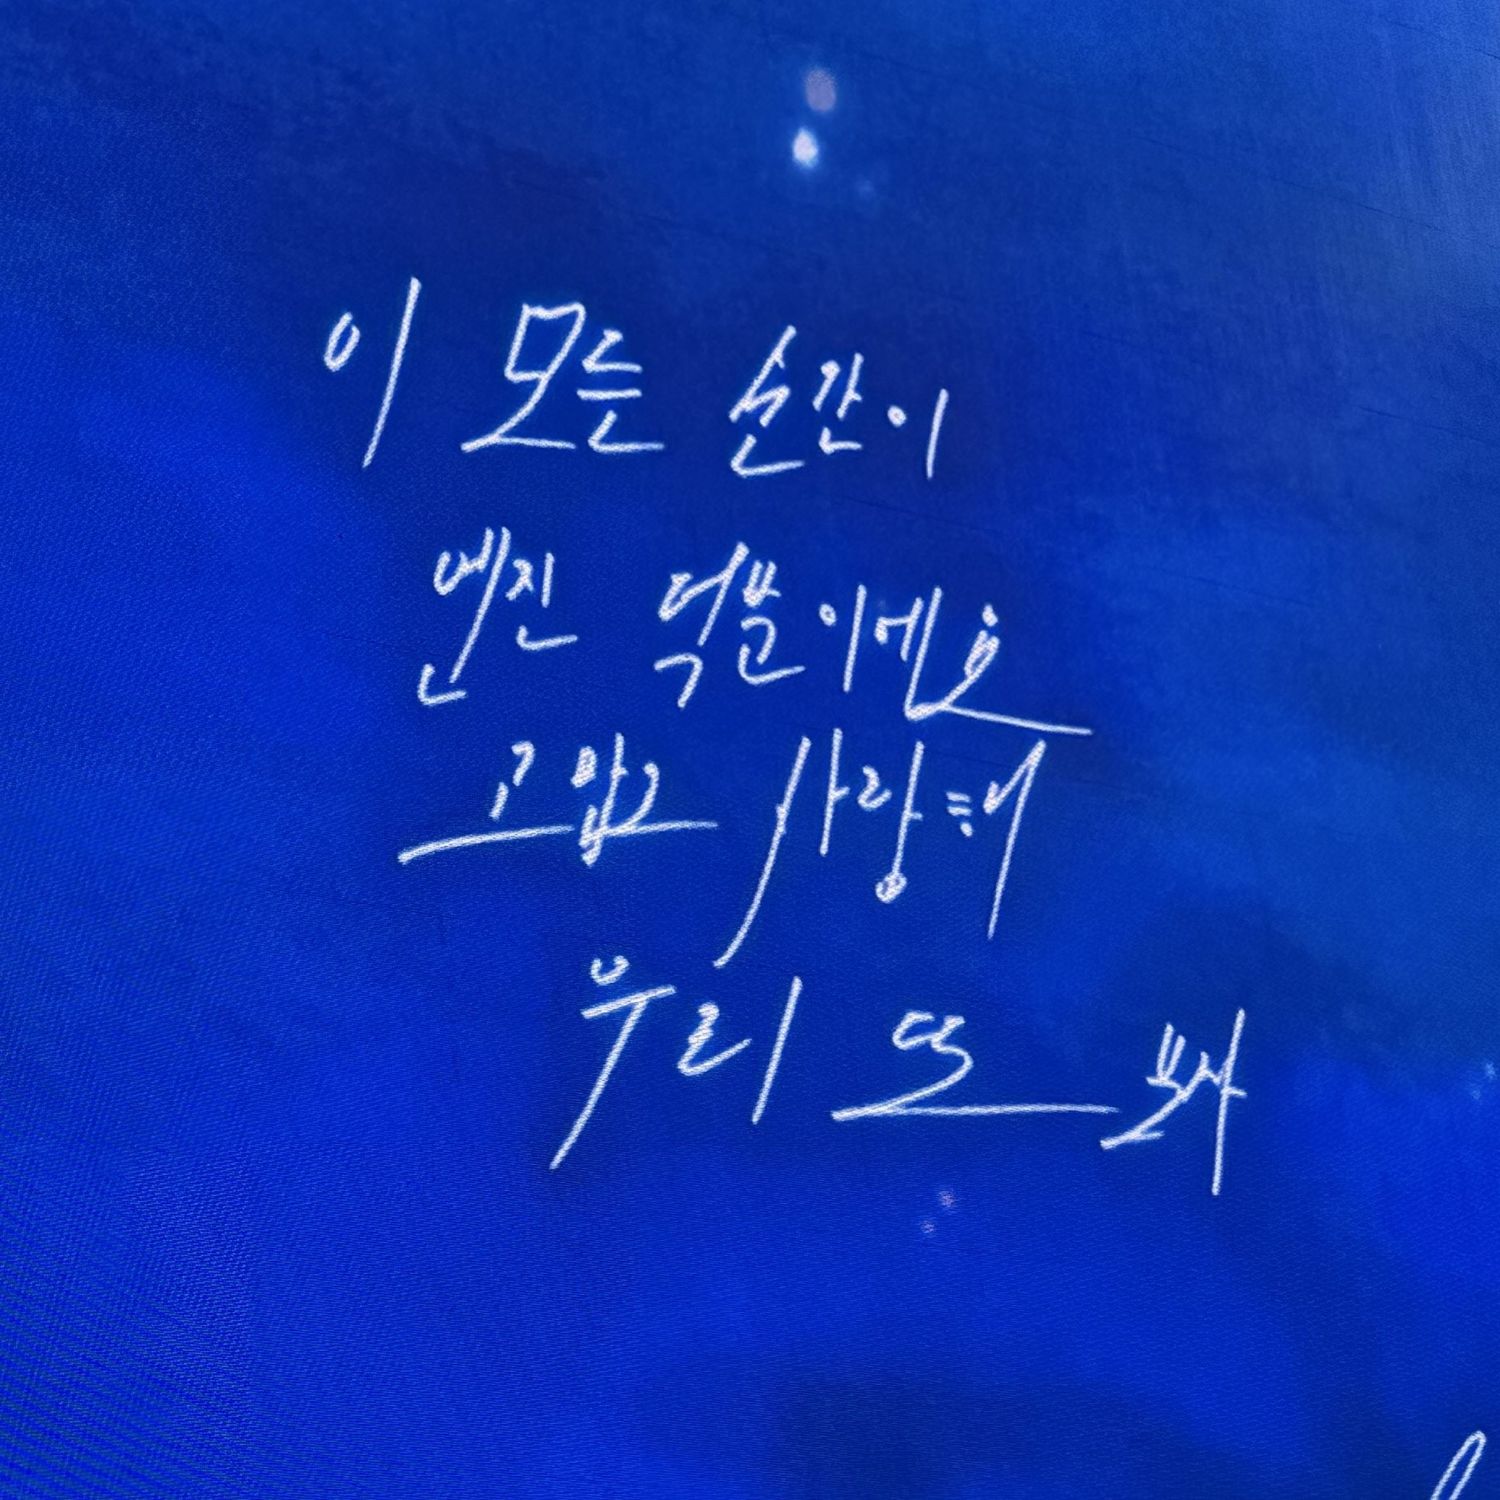 이 모든 순간이
엔진 덕분이에요
고맙고 사랑해
우리 또 봐